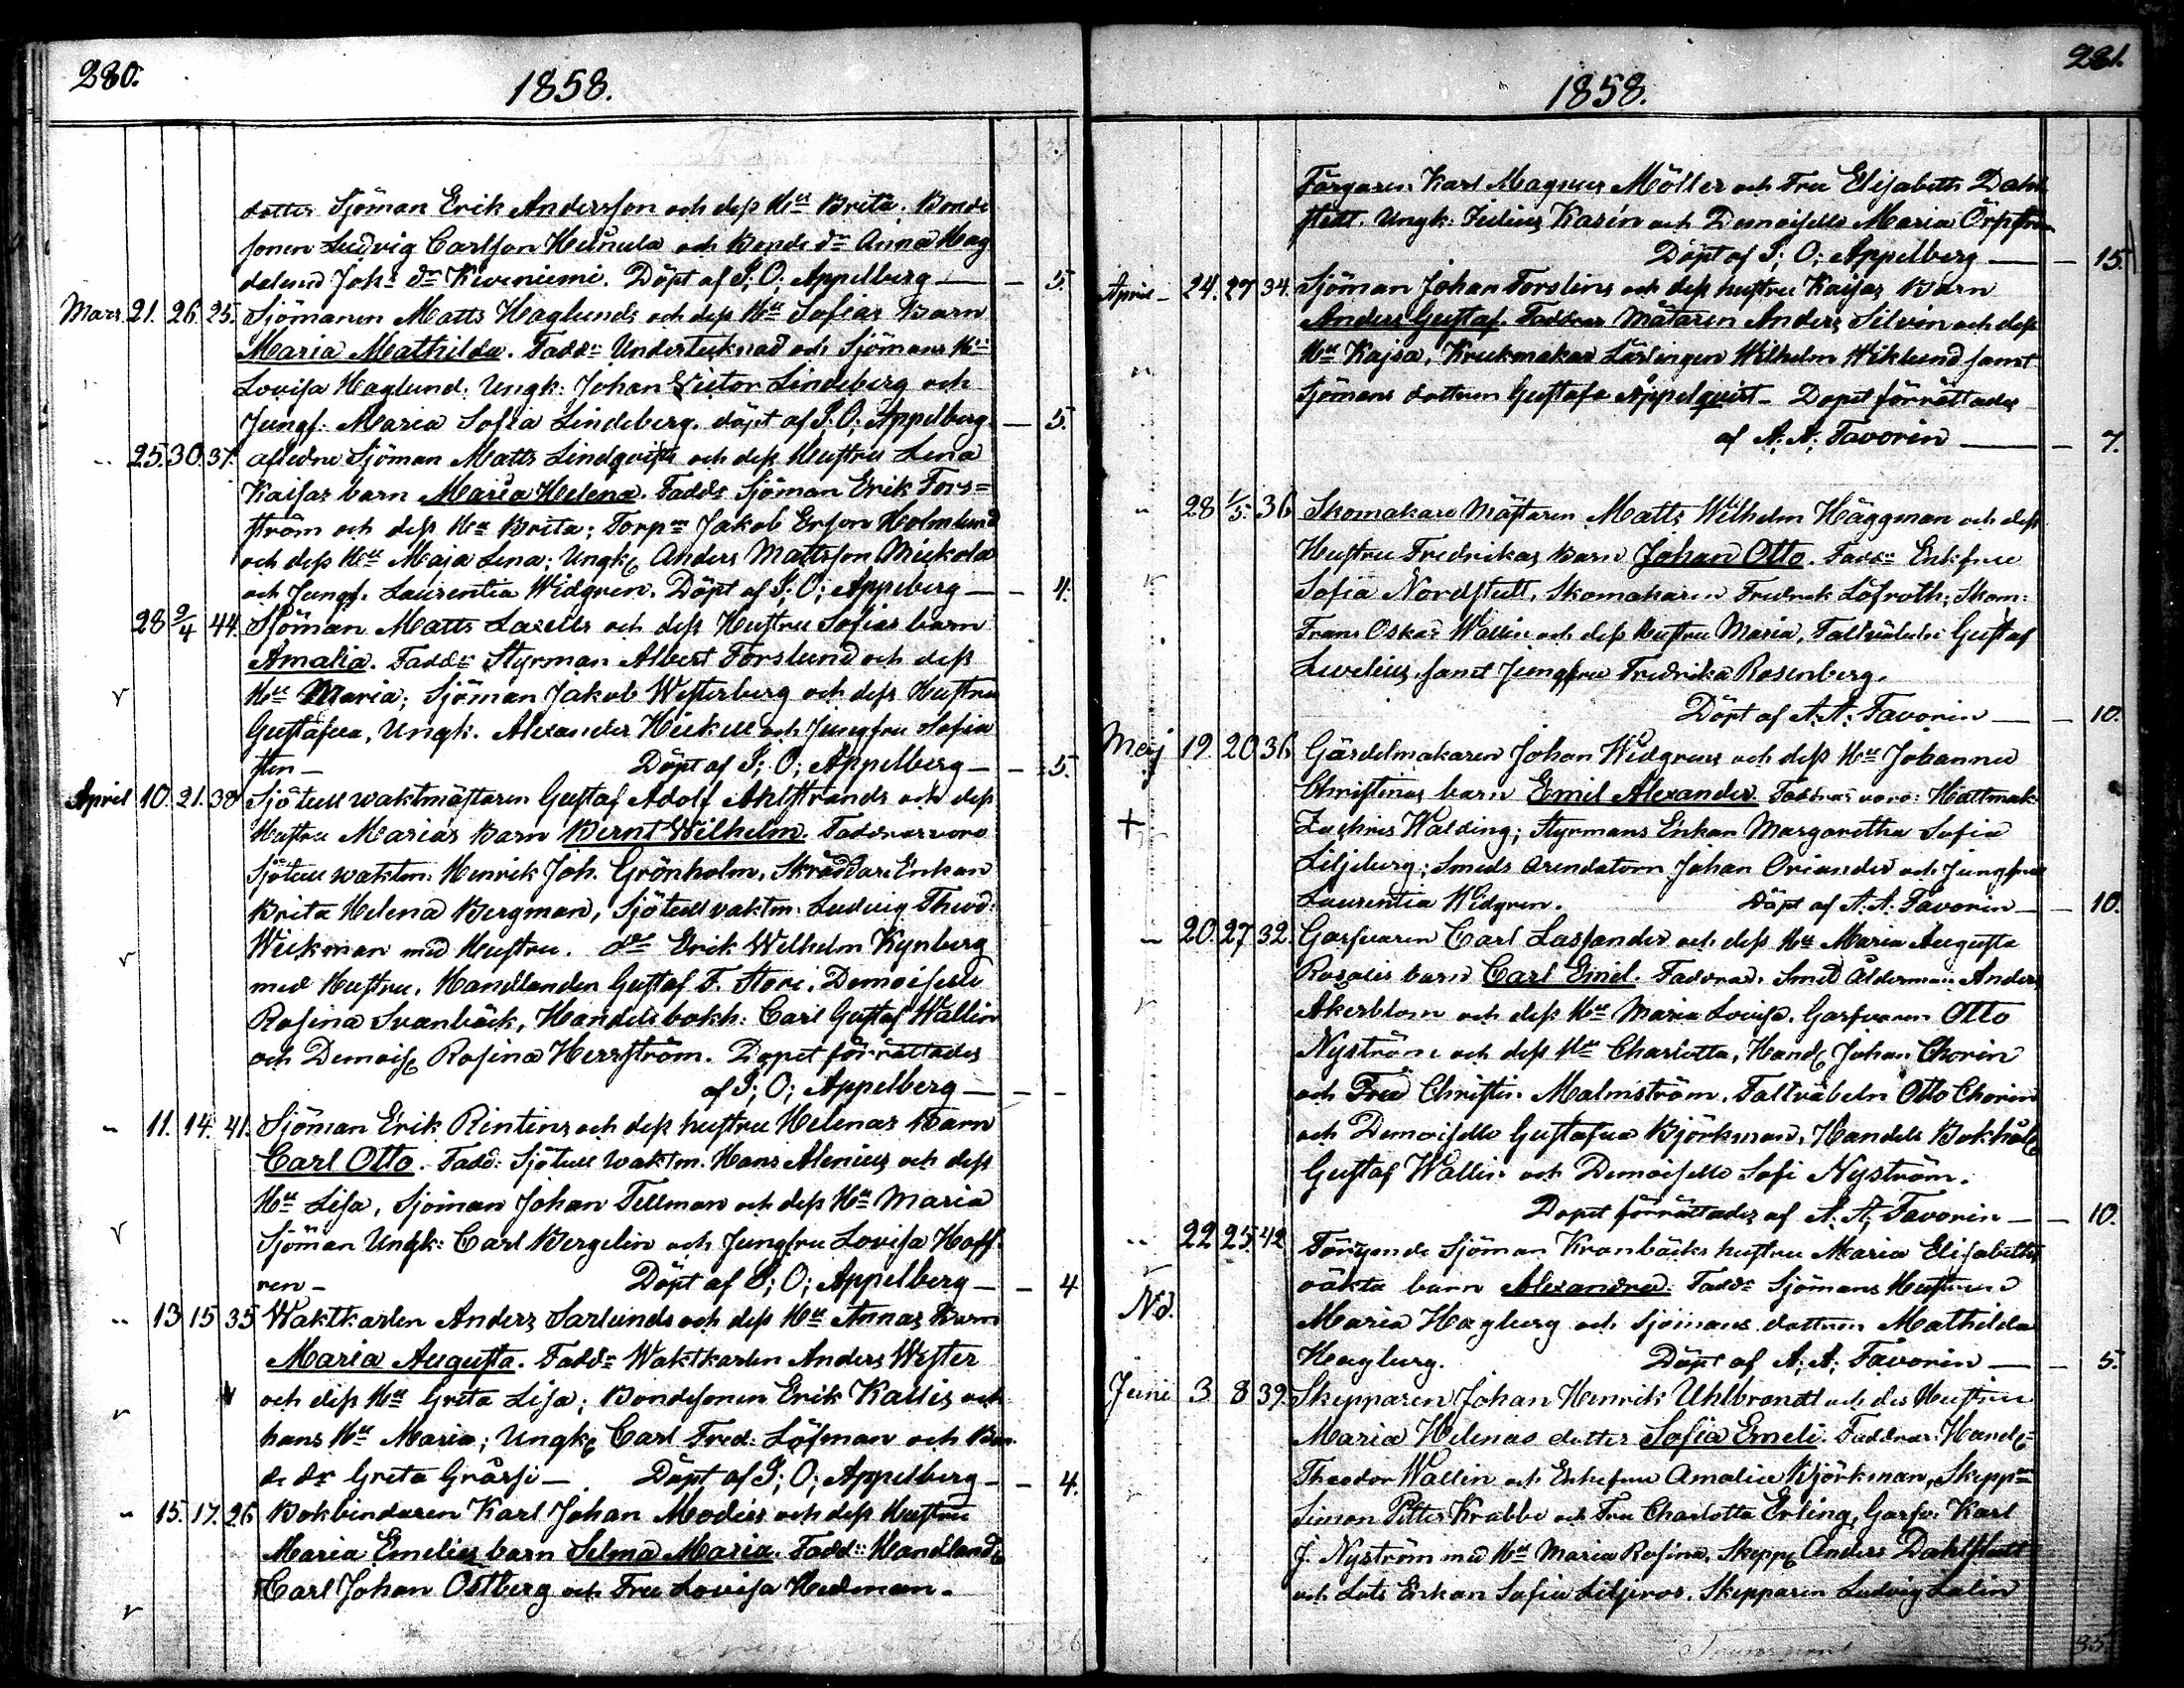 280.
1858.
dotter Sjöman Erik Andersson och dess Hu Brita; Bonde
sonen Ludvig Carlsson och Bonde dr Anna Mag
dalena Johs dr Kiveniemi. Döpt af I; O; Appelberg — — 5.
Mars 21. 26. 25. Sjömannen Matts Haglunds och dess Hu Sofias Barn
Maria Mathilda. Fadd: Undertecknad och Sjömans Hu
Lovisa Haglund; Ungk: Johan Victor Lindeberg och
Jungf: Maria Sofia Lindeberg. döpt af I; O; Appelberg. — 5.
25. 30. 37. afledne Sjöman Matts Lindqvists och dess Hustru Lena
Kaisas barn Maria Helena. Fadds Sjöman Erik Fors=
ström och dess Hu Brita; Torpn Jakob Ersson Holmlund
och dess Hu Maja Lena; Ungk Anders Mattsson Mickola
och Jungf. Laurentia Widgren. Döpt af I; O; Appelberg — — 4.
28 2/4 44. Sjöman Matts Laxells och dess Hustru Sofias barn
Amalia. Fadd: Styrman Albert Forslund och dess
Hu Maria; Sjöman Jakob Westerberg och dess Hustru
Gustafva, Ungk. Alexander Hickell och Jungfru Sofia
sten — Döpt af I; O; Appelberg — — 5.
April 10. 21. 38 Sjötull waktmästaren Gustaf Adolf Ahlstrands och dess
Hustru Marias Barn Bernt Wilhelm. Faddrar voro
Sjötull waktm: Henrik Joh. Grönholm, Skräddare Enkan
Brita Helena Bergman, Sjötull vaktm: Ludvig Theod:
Wickman med Hustru. do Erik Wilhelm Kynberg
med Hustru, Handlanden Gustaf F. Store, Demoiselle
Rosina Svanbäck, Handelsbokh: Carl Gustaf Wallin
och Demois Rosina Herrström. Dopet förrättades
af I; O; Appelberg — — -
11. 14. 41. Sjöman Erik Rintins och dess hustru Helenas Barn
Carl Otto. Fadd: Sjötull waktm. Hans Alenius och dess
Hu Lisa, Sjöman Johan Tellman och dess Hu Maria
Sjöman Ungk: Carl Bergelin och Jungfru Lovisa Hoff
ren — Döpt af I; O; Appelberg — — 4
13 15 35 Waktkarlen Anders Sarlunds och dess Hu Annas Barn
Maria Augusta. Fadd: Waktkarlen Anders Wester
och dess Hu Greta Lisa; Bondesonen Erik Kallis och
hans Hu Maria; Ungk Carl Fred: Löfman och Bon
de dr Greta Gråssi — Döpt af I; O; Appelberg — — 4.
15. 17. 26 Bokbindaren Karl Johan Modins och dess Hustru
Maria Emelies barn Selma Maria. Fadd: Handland
Carl Johan Östberg och Fru Lovisa Hedman.
281.
1858.
Färgaren Karl Magnus Möller och Fru Elisabeth Dahl
stedt. Ungk: Julius Kasén och Demoiselle Maria
Döpt af I; O; Appelberg — — 15.
April 24. 27 34. Sjöman Johan Forslins och dess hustru Kaisas Barn
Anders Gustaf. Faddrar Mätaren Anders Silvén och dess
Hu Kajsa, Krukmakar Lärlingen Wilhelm Wiklund samt
Sjömans dottren Gustafa Appelqvist — Dopet förrättades
af A; A; Favorin — — 7.
28 1/5. 36 Skomakare Mästaren Matts Wilhelm Häggman och dess
Hustru Fredrikas Barn Johan Otto. Fadd: Enkefru
Sofia Nordstedt, Skomakaren Fredrek Löfroth; Skom:
Frans Oskar Wallin och dess Hustru Maria, Gustaf
samt Jungfru Fredrika Rosenberg.
Döpt af A; A; Favorin — — 10.
Maj 19. 20 36 Gördelmakaren Johan Widgrens och dess Hu Johanna
Christinas barn Emil Alexander. Faddrar voro: Hattmak
Zachris Walding; Styrmans Enkan Margaretha Sofia
Liljeberg; Smeds arendatorn Johan Oriander och Jungfru
Laurentia Widgren. Döpt af A. A. Favorin — — 10.
20. 27 32. Garfvaren Carl Lassander och dess Hu Maria Augusta
Rosalis barn Carl Emil. Faddrar. Smed Ålderman Anders
Åkerblom och dess Hu Maria Lovisa, Garfvaren Otto
Nyström och dess Hu Charlotta, Hand Johan Chorin
och Fru Christin. Malmström, Otto Chorin
och Demoiselle Gustafva Björkman, Handels Bokhål
Gustaf Wallin och Demoiselle Sofi Nyström.
Dopet förrättades af A. A. Favorin — — 10.
22 25. 42 Sjöman Kronbäcks hustru Maria Elisabeths
oäkta barn Alexandra. Fadd: Sjömans Hustrun
Maria Hagberg och Sjömans dottren Mathilda
Hagberg. Döpt af A; A; Favorin — — 5.
Juni 3 8 39. Skepparen Johan Henrik Uhlbrandt och des Hustru
Maria Helenas dotter Sofia Emeli. Faddrar: Hand
Theodor Wallin och Enkefru Amalia Björkman, Skepp
Simon Petter Krabbe och Fru Charlotta Erling, Garfv: Karl
J. Nyström med Hu Maria Rosina, Skepp Anders Dahlstedt
och Lots Enkan Sofia Liljeros, Skepparen Ludvig Lalin